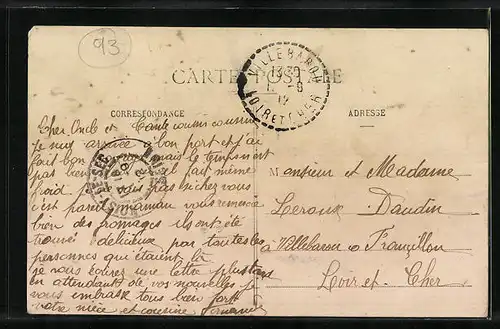 93
CARTE POSTALE
CORRESPONDANCE
ADRESSE
VILLEBAROU
13 30
1 -8
12
LOIR ET CHER
NOISY-LE-SEC
Cher Oncle et Tante cousin cousine
je suis arrivée à bon port et j'ai
fait bon mais le temps n'est
pas bien il fait même
froid chez vous
c'est pareil maman vous remercie
bien des fromages ils ont été
trouvé délicieux par toutes les
personnes qui étaient là
je vous écrirez une lettre plus tard
en attendant de vos nouvelles je
vous embrasse tous bien fort
votre nièce et cousine Fernande
Monsieur et Madame
Leroux Daudin
à Villebarou Francillon
Loir et Cher